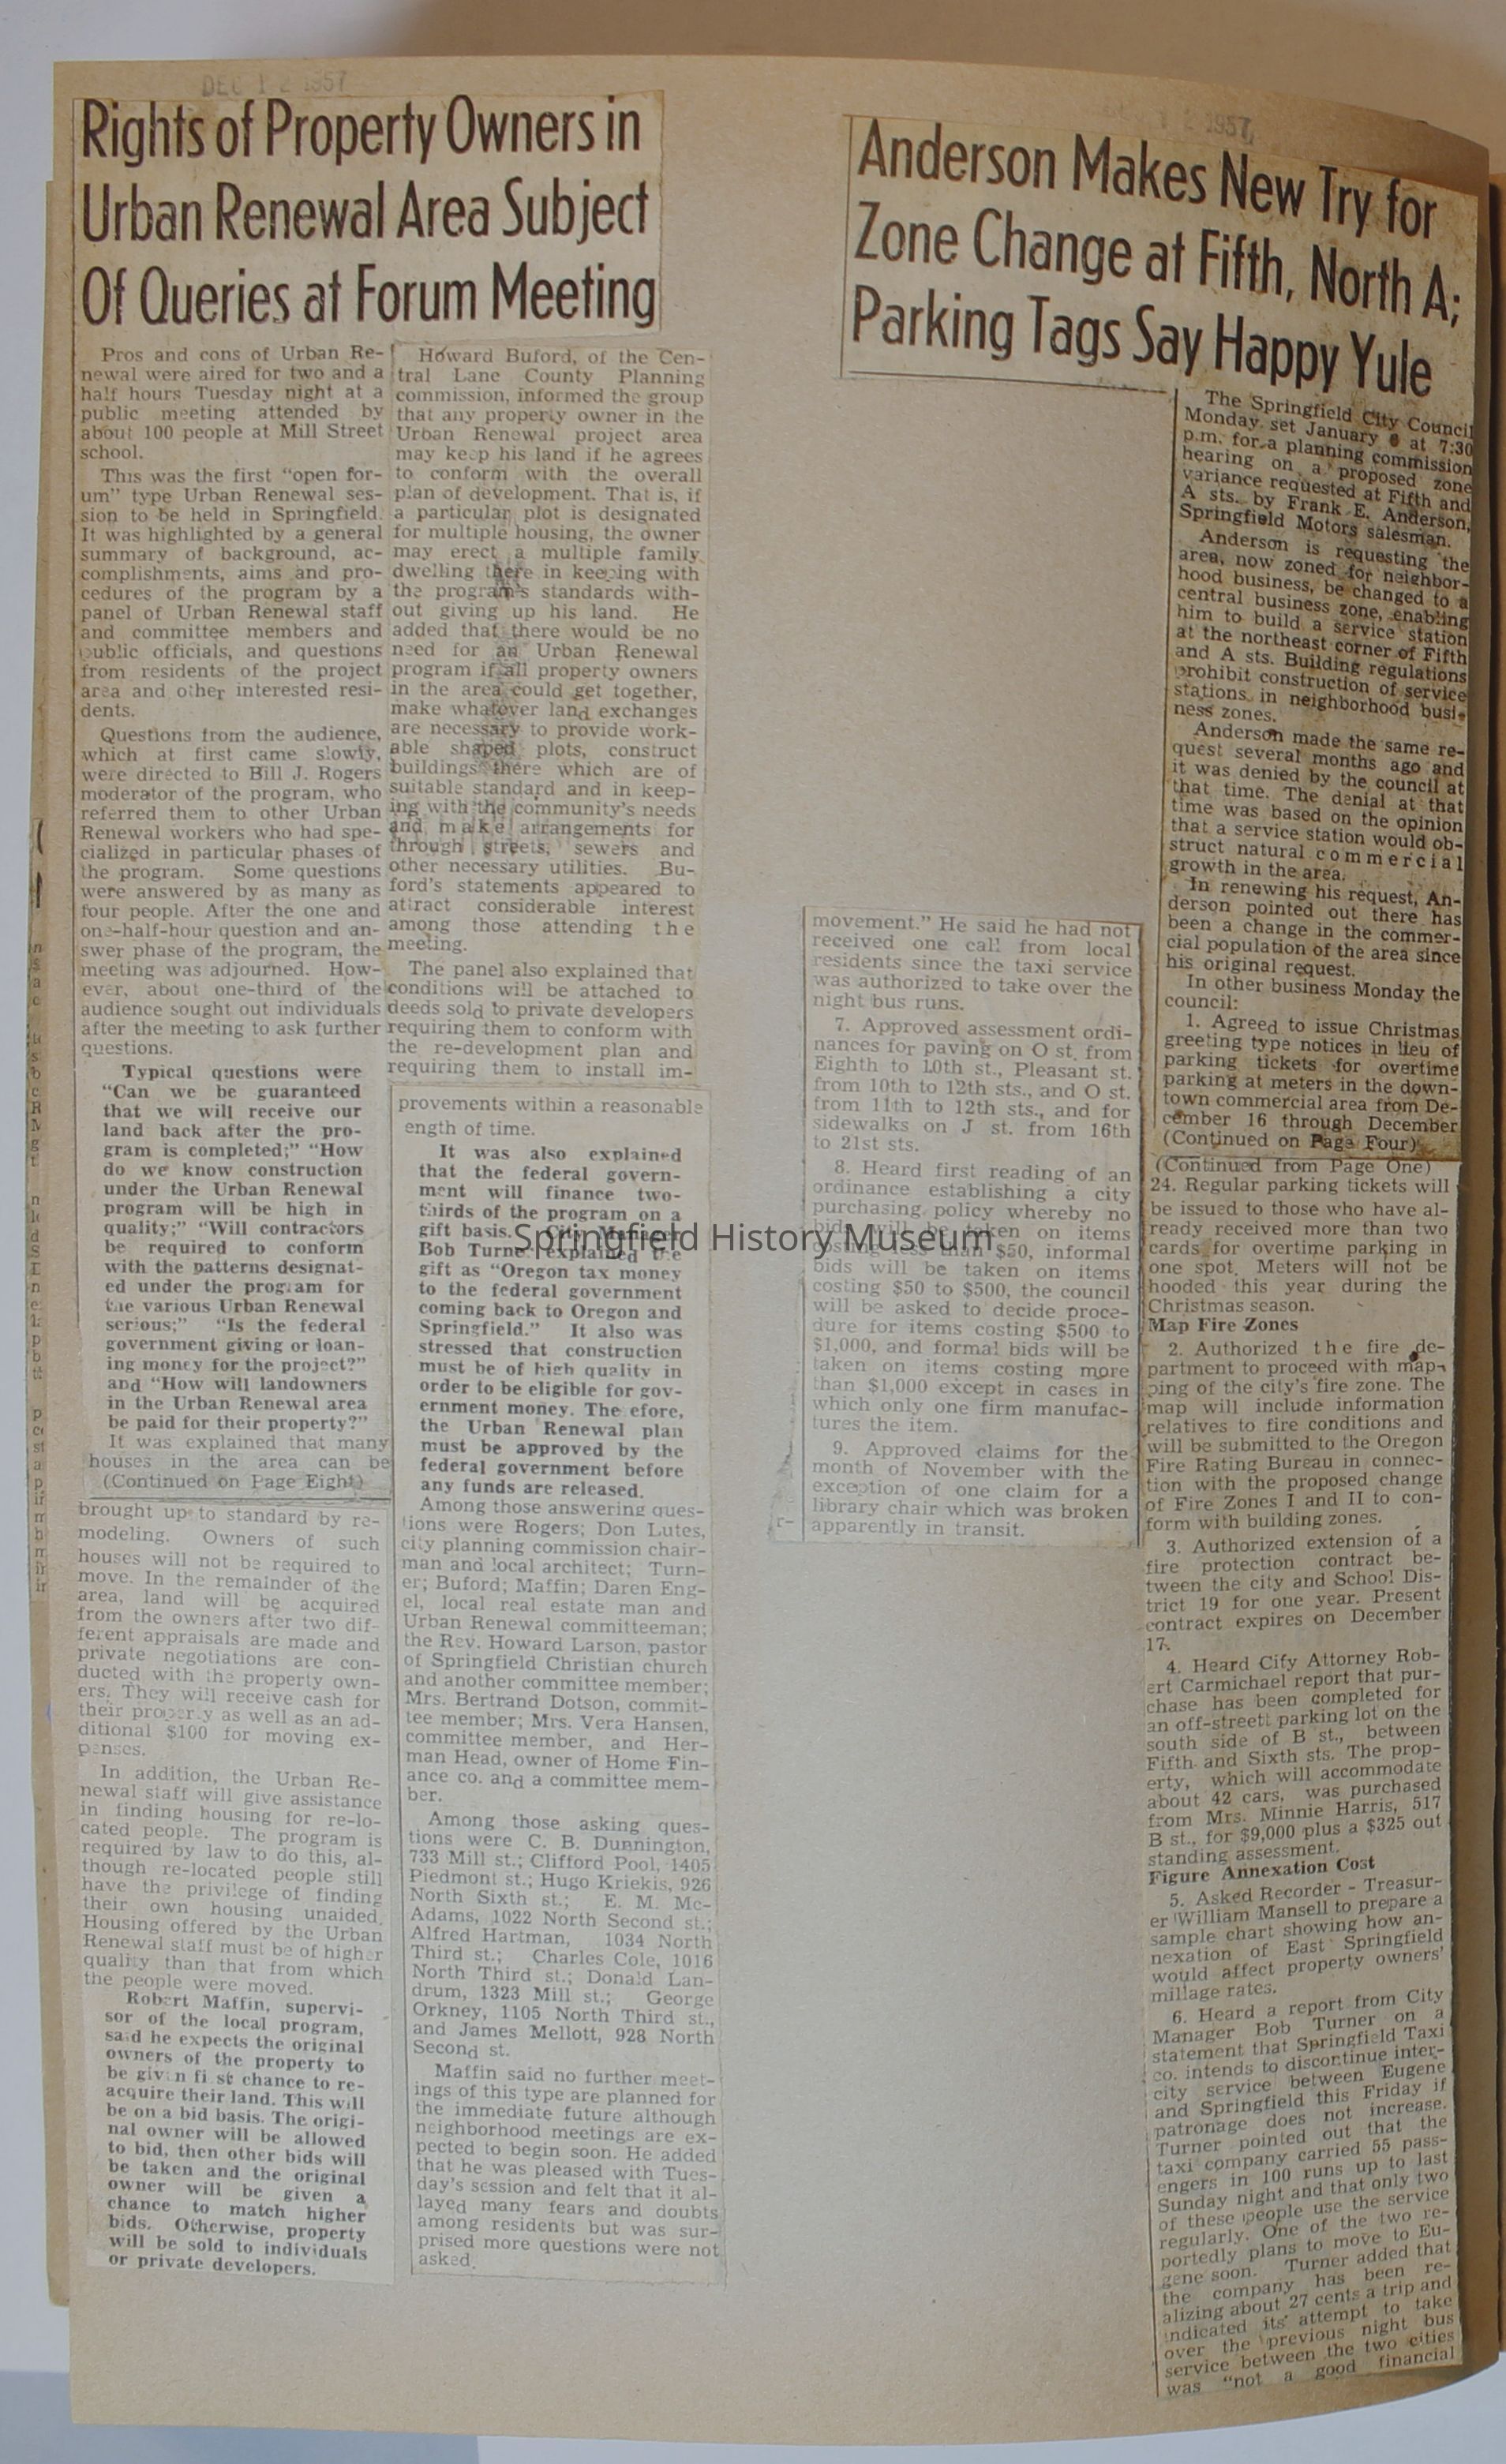 DEC 12 1957
Rights of Property Owners in
Urban Renewal Area Subject
Of Queries at Forum Meeting
Pros and cons of Urban Re-
newal were aired for two and a
half hours Tuesday night at a
public meeting attended by
about 100 people at Mill Street
school.
This was the first “open for-
um” type Urban Renewal ses-
sion to be held in Springfield.
It was highlighted by a general
summary of background, ac-
complishments, aims and pro-
cedures of the program by a
panel of Urban Renewal staff
and committee members and
public officials, and questions
from residents of the project
area and other interested resi-
dents.
Questions from the audience,
which at first came slowly,
were directed to Bill J. Rogers
moderator of the program, who
referred them to other Urban
Renewal workers who had spe-
cialized in particular phases of
the program. Some questions
were answered by as many as
four people. After the one and
one-half-hour question and an-
swer phase of the program, the
meeting was adjourned. How-
ever, about one-third of the
audience sought out individuals
after the meeting to ask further
questions.
Typical questions were
“Can we be guaranteed
that we will receive our
land back after the pro-
gram is completed;” “How
do we know construction
under the Urban Renewal
program will be high in
quality;” “Will contractors
be required to conform
with the patterns designat-
ed under the program for
the various Urban Renewal
serious;” “Is the federal
government giving or loan-
ing money for the project?”
and “How will landowners
in the Urban Renewal area
be paid for their property?”
It was explained that many
houses in the area can be
(Continued on Page Eight)
brought up to standard by re-
modeling. Owners of such
houses will not be required to
move. In the remainder of the
area, land will be acquired
from the owners after two dif-
ferent appraisals are made and
private negotiations are con-
ducted with the property own-
ers. They will receive cash for
their property as well as an ad-
ditional $100 for moving ex-
penses.
In addition, the Urban Re-
newal staff will give assistance
in finding housing for re-lo-
cated people. The program is
required by law to do this, al-
though re-located people still
have the privilege of finding
their own housing unaided.
Housing offered by the Urban
Renewal staff must be of higher
quality than that from which
the people were moved.
Robert Maffin, supervi-
sor of the local program,
said he expects the original
owners of the property to
be given first chance to re-
acquire their land. This will
be on a bid basis. The origi-
nal owner will be allowed
to bid, then other bids will
be taken and the original
owner will be given a
chance to match higher
bids. Otherwise, property
will be sold to individuals
or private developers.
Howard Buford, of the Cen-
tral Lane County Planning
commission, informed the group
that any property owner in the
Urban Renewal project area
may keep his land if he agrees
to conform with the overall
plan of development. That is, if
a particular plot is designated
for multiple housing, the owner
may erect a multiple family
dwelling there in keeping with
the program's standards with-
out giving up his land. He
added that there would be no
need for an Urban Renewal
program if all property owners
in the area could get together,
make whatever land exchanges
are necessary to provide work-
able shaped plots, construct
buildings there which are of
suitable standard and in keep-
ing with the community's needs
and make arrangements for
through streets, sewers and
other necessary utilities. Bu-
ford's statements appeared to
attract considerable interest
among those attending the
meeting.
The panel also explained that
conditions will be attached to
deeds sold to private developers
requiring them to conform with
the re-development plan and
requiring them to install im-
provements within a reasonable
ength of time.
It was also explained
that the federal govern-
ment will finance two-
thirds of the program on a
gift basis. City Manager
Bob Turner explained the
gift as “Oregon tax money
to the federal government
coming back to Oregon and
Springfield.” It also was
stressed that construction
must be of high quality in
order to be eligible for gov-
ernment money. The efore,
the Urban Renewal plan
must be approved by the
federal government before
any funds are released.
Among those answering ques-
tions were Rogers; Don Lutes,
city planning commission chair-
man and local architect; Turn-
er; Buford; Maffin; Daren Eng-
el, local real estate man and
Urban Renewal committeeman;
the Rev. Howard Larson, pastor
of Springfield Christian church
and another committee member;
Mrs. Bertrand Dotson, commit-
tee member; Mrs. Vera Hansen,
committee member, and Her-
man Head, owner of Home Fin-
ance co. and a committee mem-
ber.
Among those asking ques-
tions were C. B. Dunnington,
733 Mill st.; Clifford Pool, 1405
Piedmont st.; Hugo Kriekis, 926
North Sixth st.; E. M. Mc-
Adams, 1022 North Second st.;
Alfred Hartman, 1034 North
Third st.; Charles Cole, 1016
North Third st.; Donald Lan-
drum, 1323 Mill st.; George
Orkney, 1105 North Third st.,
and James Mellott, 928 North
Second st.
Maffin said no further meet-
ings of this type are planned for
the immediate future although
neighborhood meetings are ex-
pected to begin soon. He added
that he was pleased with Tues-
day's session and felt that it al-
layed many fears and doubts
among residents but was sur-
prised more questions were not
asked.
12 1957
Anderson Makes New Try for
Zone Change at Fifth, North A;
Parking Tags Say Happy Yule
The Springfield City Council
Monday set January 6 at 7:30
p.m. for a planning commission
hearing on a proposed zone
variance requested at Fifth and
A sts. by Frank E. Anderson,
Springfield Motors salesman.
Anderson is requesting the
area, now zoned for neighbor-
hood business, be changed to a
central business zone, enabling
him to build a service station
at the northeast corner of Fifth
and A sts. Building regulations
prohibit construction of service
stations in neighborhood busi-
ness zones.
Anderson made the same re-
quest several months ago and
it was denied by the council at
that time. The denial at that
time was based on the opinion
that a service station would ob-
struct natural commercial
growth in the area.
In renewing his request, An-
derson pointed out there has
been a change in the commer-
cial population of the area since
his original request.
In other business Monday the
council:
1. Agreed to issue Christmas
greeting type notices in lieu of
parking tickets for overtime
parking at meters in the down-
town commercial area from De-
cember 16 through December
(Continued on Page Four)
(Continued from Page One)
24. Regular parking tickets will
be issued to those who have al-
ready received more than two
cards for overtime parking in
one spot. Meters will not be
hooded this year during the
Christmas season.
Map Fire Zones
2. Authorized the fire de-
partment to proceed with map-
ping of the city's fire zone. The
map will include information
relatives to fire conditions and
will be submitted to the Oregon
Fire Rating Bureau in connec-
tion with the proposed change
of Fire Zones I and II to con-
form with building zones.
3. Authorized extension of a
fire protection contract be-
tween the city and School Dis-
trict 19 for one year. Present
contract expires on December
17.
4. Heard City Attorney Rob-
ert Carmichael report that pur-
chase has been completed for
an off-streett parking lot on the
south side of B st., between
Fifth and Sixth sts. The prop-
erty, which will accommodate
about 42 cars, was purchased
from Mrs. Minnie Harris, 517
B st., for $9,000 plus a $325 out
standing assessment.
Figure Annexation Cost
5. Asked Recorder - Treasur-
er William Mansell to prepare a
sample chart showing how an-
nexation of East Springfield
would affect property owners'
millage rates.
6. Heard a report from City
Manager Bob Turner on a
statement that Springfield Taxi
co. intends to discontinue inter-
city service between Eugene
and Springfield this Friday if
patronage does not increase.
Turner pointed out that the
taxi company carried 55 pass-
engers in 100 runs up to last
Sunday night and that only two
of these people use the service
regularly. One of the two re-
portedly plans to move to Eu-
gene soon. Turner added that
the company has been re-
alizing about 27 cents a trip and
indicated its attempt to take
over the previous night bus
service between the two cities
was “not a good financial
movement.” He said he had not
received one call from local
residents since the taxi service
was authorized to take over the
night bus runs.
7. Approved assessment ordi-
nances for paving on O st. from
Eighth to 10th st., Pleasant st.
from 10th to 12th sts., and O st.
from 11th to 12th sts., and for
sidewalks on J st. from 16th
to 21st sts.
8. Heard first reading of an
ordinance establishing a city
purchasing policy whereby no
bids will be taken on items
costing less than $50, informal
bids will be taken on items
costing $50 to $500, the council
will be asked to decide proce-
dure for items costing $500 to
$1,000, and formal bids will be
taken on items costing more
than $1,000 except in cases in
which only one firm manufac-
tures the item.
9. Approved claims for the
month of November with the
exception of one claim for a
library chair which was broken
apparently in transit.
Springfield History Museum